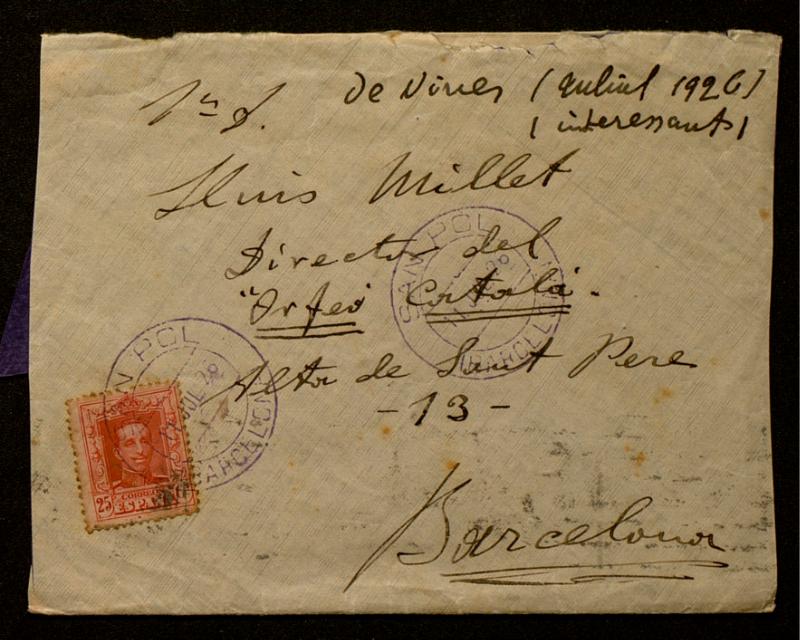 De Vines (Juliol 1926)
(interessants)
Sr. D.
Lluis Millet
Director del
"Orfeó Català.
Alta de Sant Pere
-13-
Barcelona
SAN POL
BARCELONA
SAN POL
JUL 26
BARCELONA
25 CORREOS
ESPAÑA